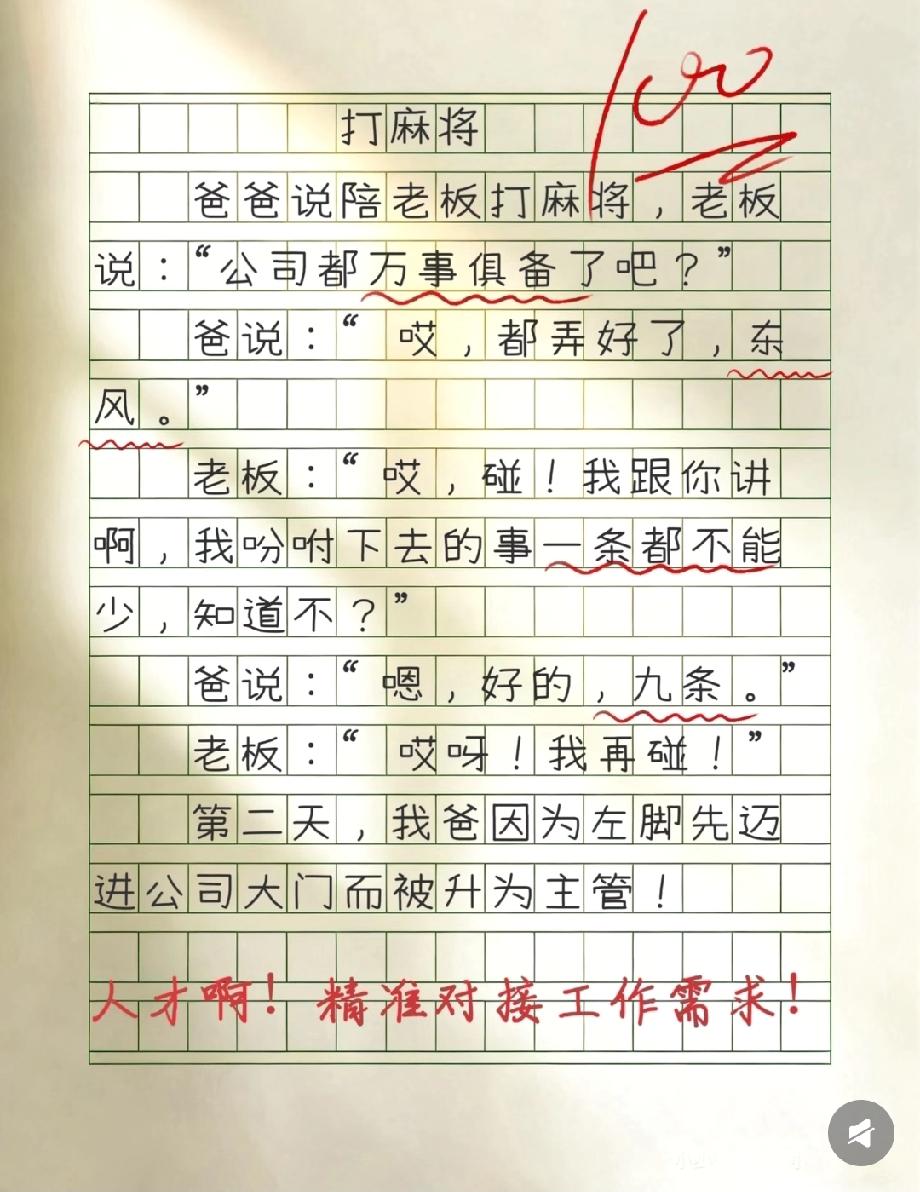 100
打麻将
爸爸说陪老板打麻将，老板
说：“公司都万事俱备了吧？”
爸说：“哎，都弄好了，东
风。”
老板：“哎，碰！我跟你讲
啊，我吩咐下去的事一条都不能
少，知道不？”
爸说：“嗯，好的，九条。”
老板：“哎呀！我再碰！”
第二天，我爸因为左脚先迈
进公司大门而被升为主管！
人才啊！精准对接工作需求！